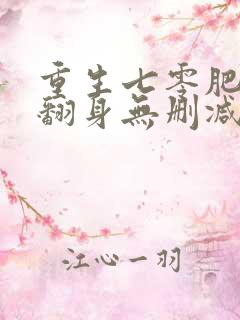 重生七零肥
翻身無刪減
江心一羽